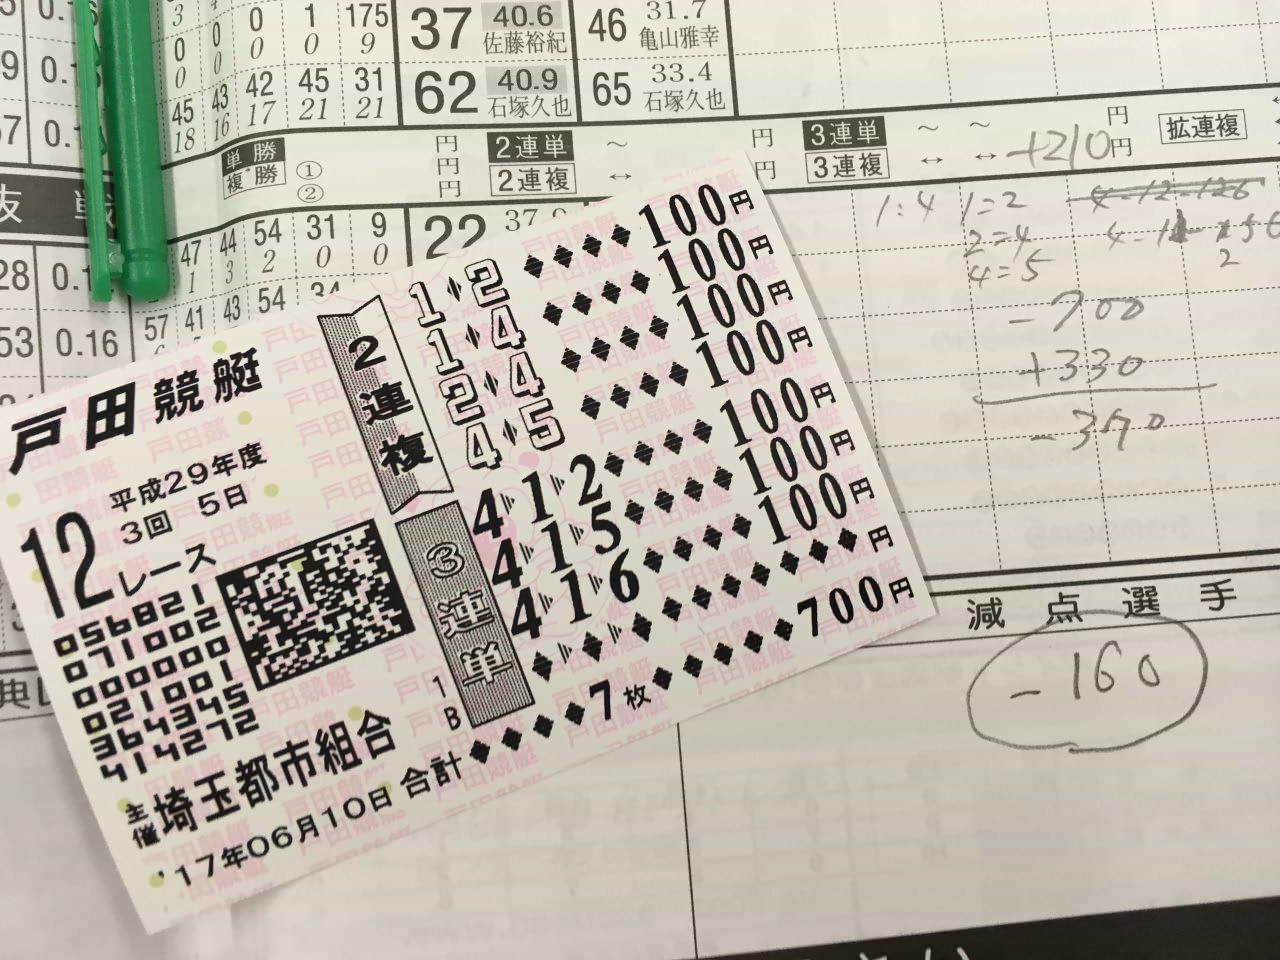 0 0 0 1 175
0 0 0 0 9
45 43 42 45 31
18 16 17 21 21
37 40.6 佐藤裕紀 46 31.7 亀山雅幸
62 40.9 石塚久也 65 33.4 石塚久也
単勝 ① 円
複勝 ② 円
円
2連単 ~ 円
2連複 ↔ 円
3連単 ~ ~ 円
3連複 ↔ ↔ 円
拡連複
+210
28
47 44 54 31 9
1 3 2 0 0
22
53 0.16
57 41 43 54
1:4 1=2
2=4
4=5
-700
+330
-370
減点選手
-160
戸田競艇
平成29年度
3回 5日
12レース
056821
071002
000000
021001
364345
414272
主催 埼玉都市組合
'17年06月10日
2連複
1 2 100円
1 4 100円
2 4 100円
4 5 100円
3連単
4 1 2 100円
4 1 5 100円
4 1 6 100円
円
1
B
合計 7枚 700円